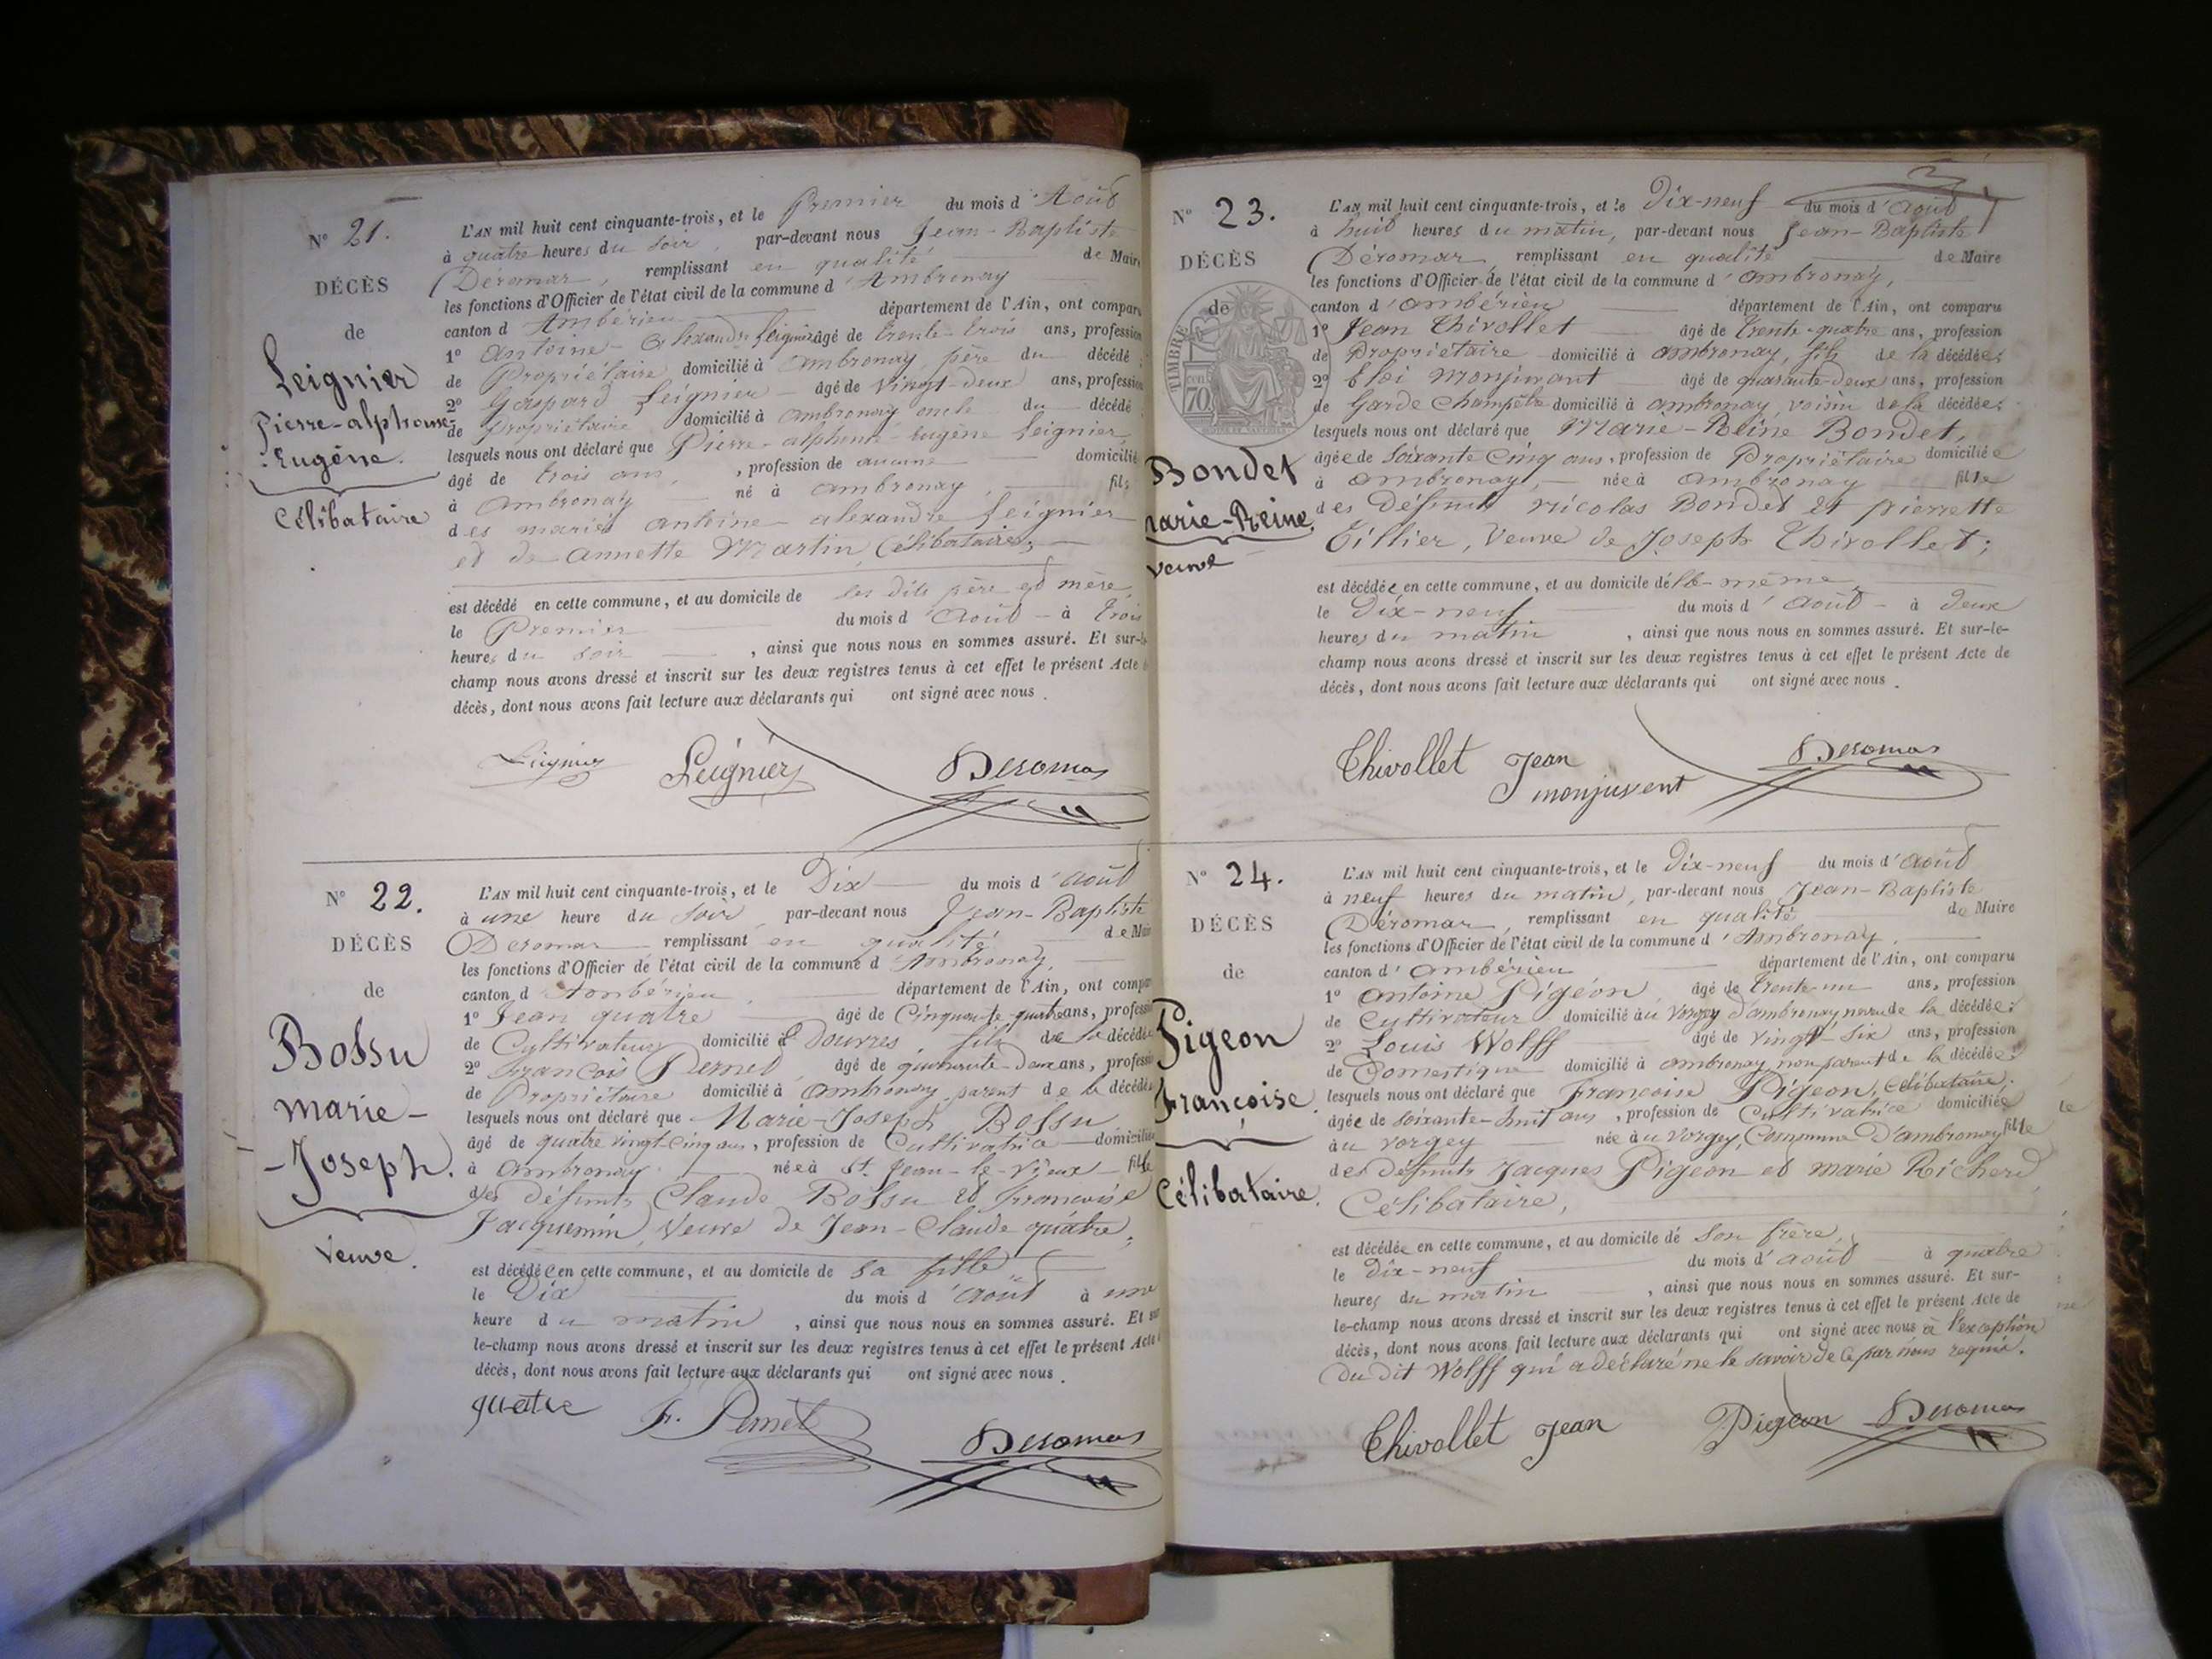 N° 21.
DÉCÈS
de
Leignier
Pierre-alphonse-
Eugène.
Célibataire
L'AN mil huit cent cinquante-trois, et le Premier du mois d'Août
à quatre heures du soir, par-devant nous Jean-Baptiste
Déromas, remplissant en qualité de Maire
les fonctions d'Officier de l'état civil de la commune d'Ambronay
canton d'Ambérieu département de l'Ain, ont comparu
1° Antoine-Alixandre Leignier âgé de trente-trois ans, profession
de Propriétaire domicilié à ambronay, père du décédé;
2° Gaspard Leignier âgé de Vingt-deux ans, profession
de Propriétaire domicilié à ambronay oncle du décédé
lesquels nous ont déclaré que Pierre-alphonse-Eugène Leignier,
âgé de trois ans, profession de aucune domicilié
à Ambronay né à ambronay, fils
des mariés antoine-alexandre Leignier
et de annette Martin, Célibataire;
est décédé en cette commune, et au domicile de ses dits père et mère,
le Premier du mois d'Août à trois
heures du soir, ainsi que nous nous en sommes assuré. Et sur-le-
champ nous avons dressé et inscrit sur les deux registres tenus à cet effet le présent Acte de
décès, dont nous avons fait lecture aux déclarants qui ont signé avec nous.
Leignier Leignier Deromas
N° 22.
DÉCÈS
de
Bossu
Marie-
-Joseph.
Veuve.
L'AN mil huit cent cinquante-trois, et le Dix du mois d'août
à une heure du soir par-devant nous Jean-Baptiste
Deromas remplissant en qualité de Maire
les fonctions d'Officier de l'état civil de la commune d'Ambronay,
canton d'Ambérieu, département de l'Ain, ont comparu
1° Jean quatre âgé de Cinquante-quatre ans, profession
de Cultivateur domicilié à Douvres, fils de la décédée
2° François Pernet, âgé de quarante-deux ans, profession
de Propriétaire domicilié à Ambronay parent de la décédée
lesquels nous ont déclaré que Marie-Joseph Bossu
âgé de quatre vingt-cinq ans, profession de Cultivatrice domiciliée
à Ambronay née à St. Jean-le-Vieux fille
des défunts Claude Bossu et françoise
Jacquemin, Veuve de Jean-Claude quatre;
est décédée en cette commune, et au domicile de sa fille
le Dix du mois d'Août à une
heure du matin, ainsi que nous nous en sommes assuré. Et sur
le-champ nous avons dressé et inscrit sur les deux registres tenus à cet effet le présent Acte
décès, dont nous avons fait lecture aux déclarants qui ont signé avec nous.
quatre F. Pernet Deromas
N° 23.
DÉCÈS
de
TIMBRE
70 cen
Bondet
Marie-Reine.
Veuve
L'AN mil huit cent cinquante-trois, et le Dix-neuf du mois d'août
à huit heures du matin, par-devant nous Jean-Baptiste
Déromas, remplissant en qualité de Maire
les fonctions d'Officier de l'état civil de la commune d'ambronay,
canton d'ambérieu département de l'Ain, ont comparu
1° Jean Thivollet âgé de trente-quatre ans, profession
de Propriétaire domicilié à ambronay, fils de la décédée;
2° Eloi monjuvant âgé de quarante-deux ans, profession
de Garde Champêtre domicilié à ambronay, voisin de la décédée;
lesquels nous ont déclaré que Marie-Reine Bondet,
âgée de soixante Cinq ans, profession de Propriétaire domiciliée
à ambronay, née à ambronay fille
des défunts nicolas Bondet et pierrette
Tillier, Veuve de Joseph Thivollet;
est décédée en cette commune, et au domicile d'elle-même,
le Dix-neuf du mois d'Août à deux
heures du matin, ainsi que nous nous en sommes assuré. Et sur-le-
champ nous avons dressé et inscrit sur les deux registres tenus à cet effet le présent Acte de
décès, dont nous avons fait lecture aux déclarants qui ont signé avec nous.
Thivollet Jean monjuvent Deromas
N° 24.
DÉCÈS
de
Pigeon
Françoise.
Célibataire.
L'AN mil huit cent cinquante-trois, et le Dix-neuf du mois d'août
à neuf heures du matin, par-devant nous Jean-Baptiste
Déromas, remplissant en qualité de Maire
les fonctions d'Officier de l'état civil de la commune d'Ambronay,
canton d'ambérieu département de l'Ain, ont comparu
1° antoine Pigeon, âgé de trente-un ans, profession
de Cultivateur domicilié au Vorgey d'ambronay neveu de la décédée;
2° Louis Wolff âgé de vingt-six ans, profession
de Domestique domicilié à ambronay non parent de la décédée;
lesquels nous ont déclaré que Françoise Pigeon, Célibataire,
âgée de soixante-huit ans, profession de Cultivatrice domiciliée
au Vorgey née au Vorgey, Commune d'ambronay fille
des défunts Jacques Pigeon et marie Richerd,
Célibataire,
est décédée en cette commune, et au domicile de son frère,
le dix-neuf du mois d'août à quatre
heures du matin, ainsi que nous nous en sommes assuré. Et sur-
le-champ nous avons dressé et inscrit sur les deux registres tenus à cet effet le présent Acte de
décès, dont nous avons fait lecture aux déclarants qui ont signé avec nous à l'exception
du dit Wolff qui a déclaré ne le savoir de ce par nous requis.
Thivollet Jean Pigeon Deromas